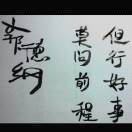 但行好事
莫问前程
郭德纲